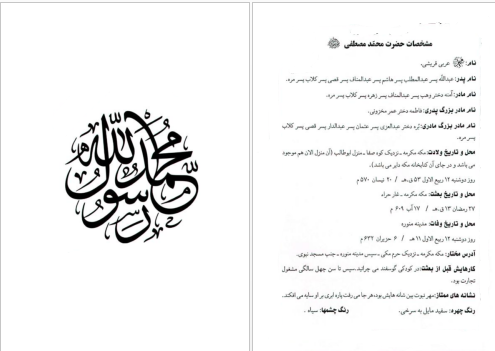 محمد رسول الله
مشخصات حضرت محمد مصطفی ﷺ
نام: محمد ﷺ عربی قریشی.
نام پدر: عبدالله پسر عبدالمطلب پسر هاشم پسر عبدالمناف پسر قصی پسر کلاب پسر مره.
نام مادر: آمنه دختر وهب پسر عبدالمناف پسر زهره پسر کلاب پسر مره.
نام مادر بزرگ پدری: فاطمه دختر عمر مخزونی.
نام مادر بزرگ مادری: بره دختر عبدالعزی پسر عثمان پسر عبدالدار پسر قصی پسر کلاب
پسر مره.
محل و تاریخ ولادت: مکه مکرمه ـ نزدیک کوه صفا ـ منزل ابوطالب (آن منزل الان هم موجود
می باشد و در جای آن کتابخانه مکه دایر می باشد).
روز دوشنبه ۱۲ ربیع الاول ۵۳ ق.هـ / ۲۰ نیسان ۵۷۰ م
محل و تاریخ بعثت: مکه مکرمه ـ غار حراء
۲۷ رمضان ۱۳ ق.هـ / ۱۷ آب ۶۰۹ م
محل و تاریخ وفات: مدینه منوره
روز دوشنبه ۱۲ ربیع الاول ۱۱ هـ / ۶ حزیران ۶۳۲ م
آدرس مختار: مکه مکرمه ـ نزدیک حرم مکی ـ سپس مدینه منوره ـ جنب مسجد نبوی.
کارهایش قبل از بعثت: در کودکی گوسفند می چرانید. سپس تا سن چهل سالگی مشغول
تجارت بود.
نشانه های ممتاز: مهر نبوت بین شانه هایش بوده، هر جا می رفت پاره ابری بر او سایه می افکند.
رنگ چهره: سفید مایل به سرخی. رنگ چشمها: سیاه .